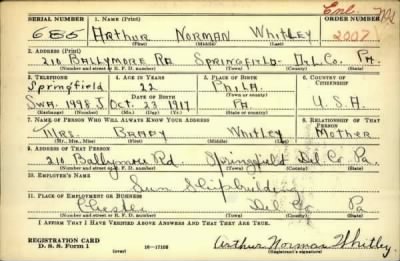 SERIAL NUMBER 1. NAME (Print) Enl. ORDER NUMBER
685 Arthur Norman Whitley 2007
(First) (Middle) (Last)
2. ADDRESS (Print)
210 Ballymore Rd Springfield Del. Co. Pa.
(Number and street or R. F. D. number) (Town) (County) (State)
3. TELEPHONE 4. AGE IN YEARS 5. PLACE OF BIRTH 6. COUNTRY OF CITIZENSHIP
Springfield 22 Phila.
(Town or county)
Swa. 1498 J Oct. 23, 1917 Pa U.S.A.
7. NAME OF PERSON WHO WILL ALWAYS KNOW YOUR ADDRESS 8. RELATIONSHIP OF THAT PERSON
Mrs. Whitley Mother
(Mr., Mrs., Miss) (First) (Middle) (Last)
9. ADDRESS OF THAT PERSON
210 Ballymore Rd. Springfield Del Co. Pa.
(Number and street or R. F. D. number) (Town) (County) (State)
10. EMPLOYER'S NAME
Sun Shipbuilding
11. PLACE OF EMPLOYMENT OR BUSINESS
Chester Del Co Pa
(Number and street or R. F. D. number) (Town) (County) (State)
I AFFIRM THAT I HAVE VERIFIED ABOVE ANSWERS AND THAT THEY ARE TRUE.
REGISTRATION CARD
D. S. S. Form 1 (over) 16—17105 Arthur Norman Whitley
(Registrant's signature)